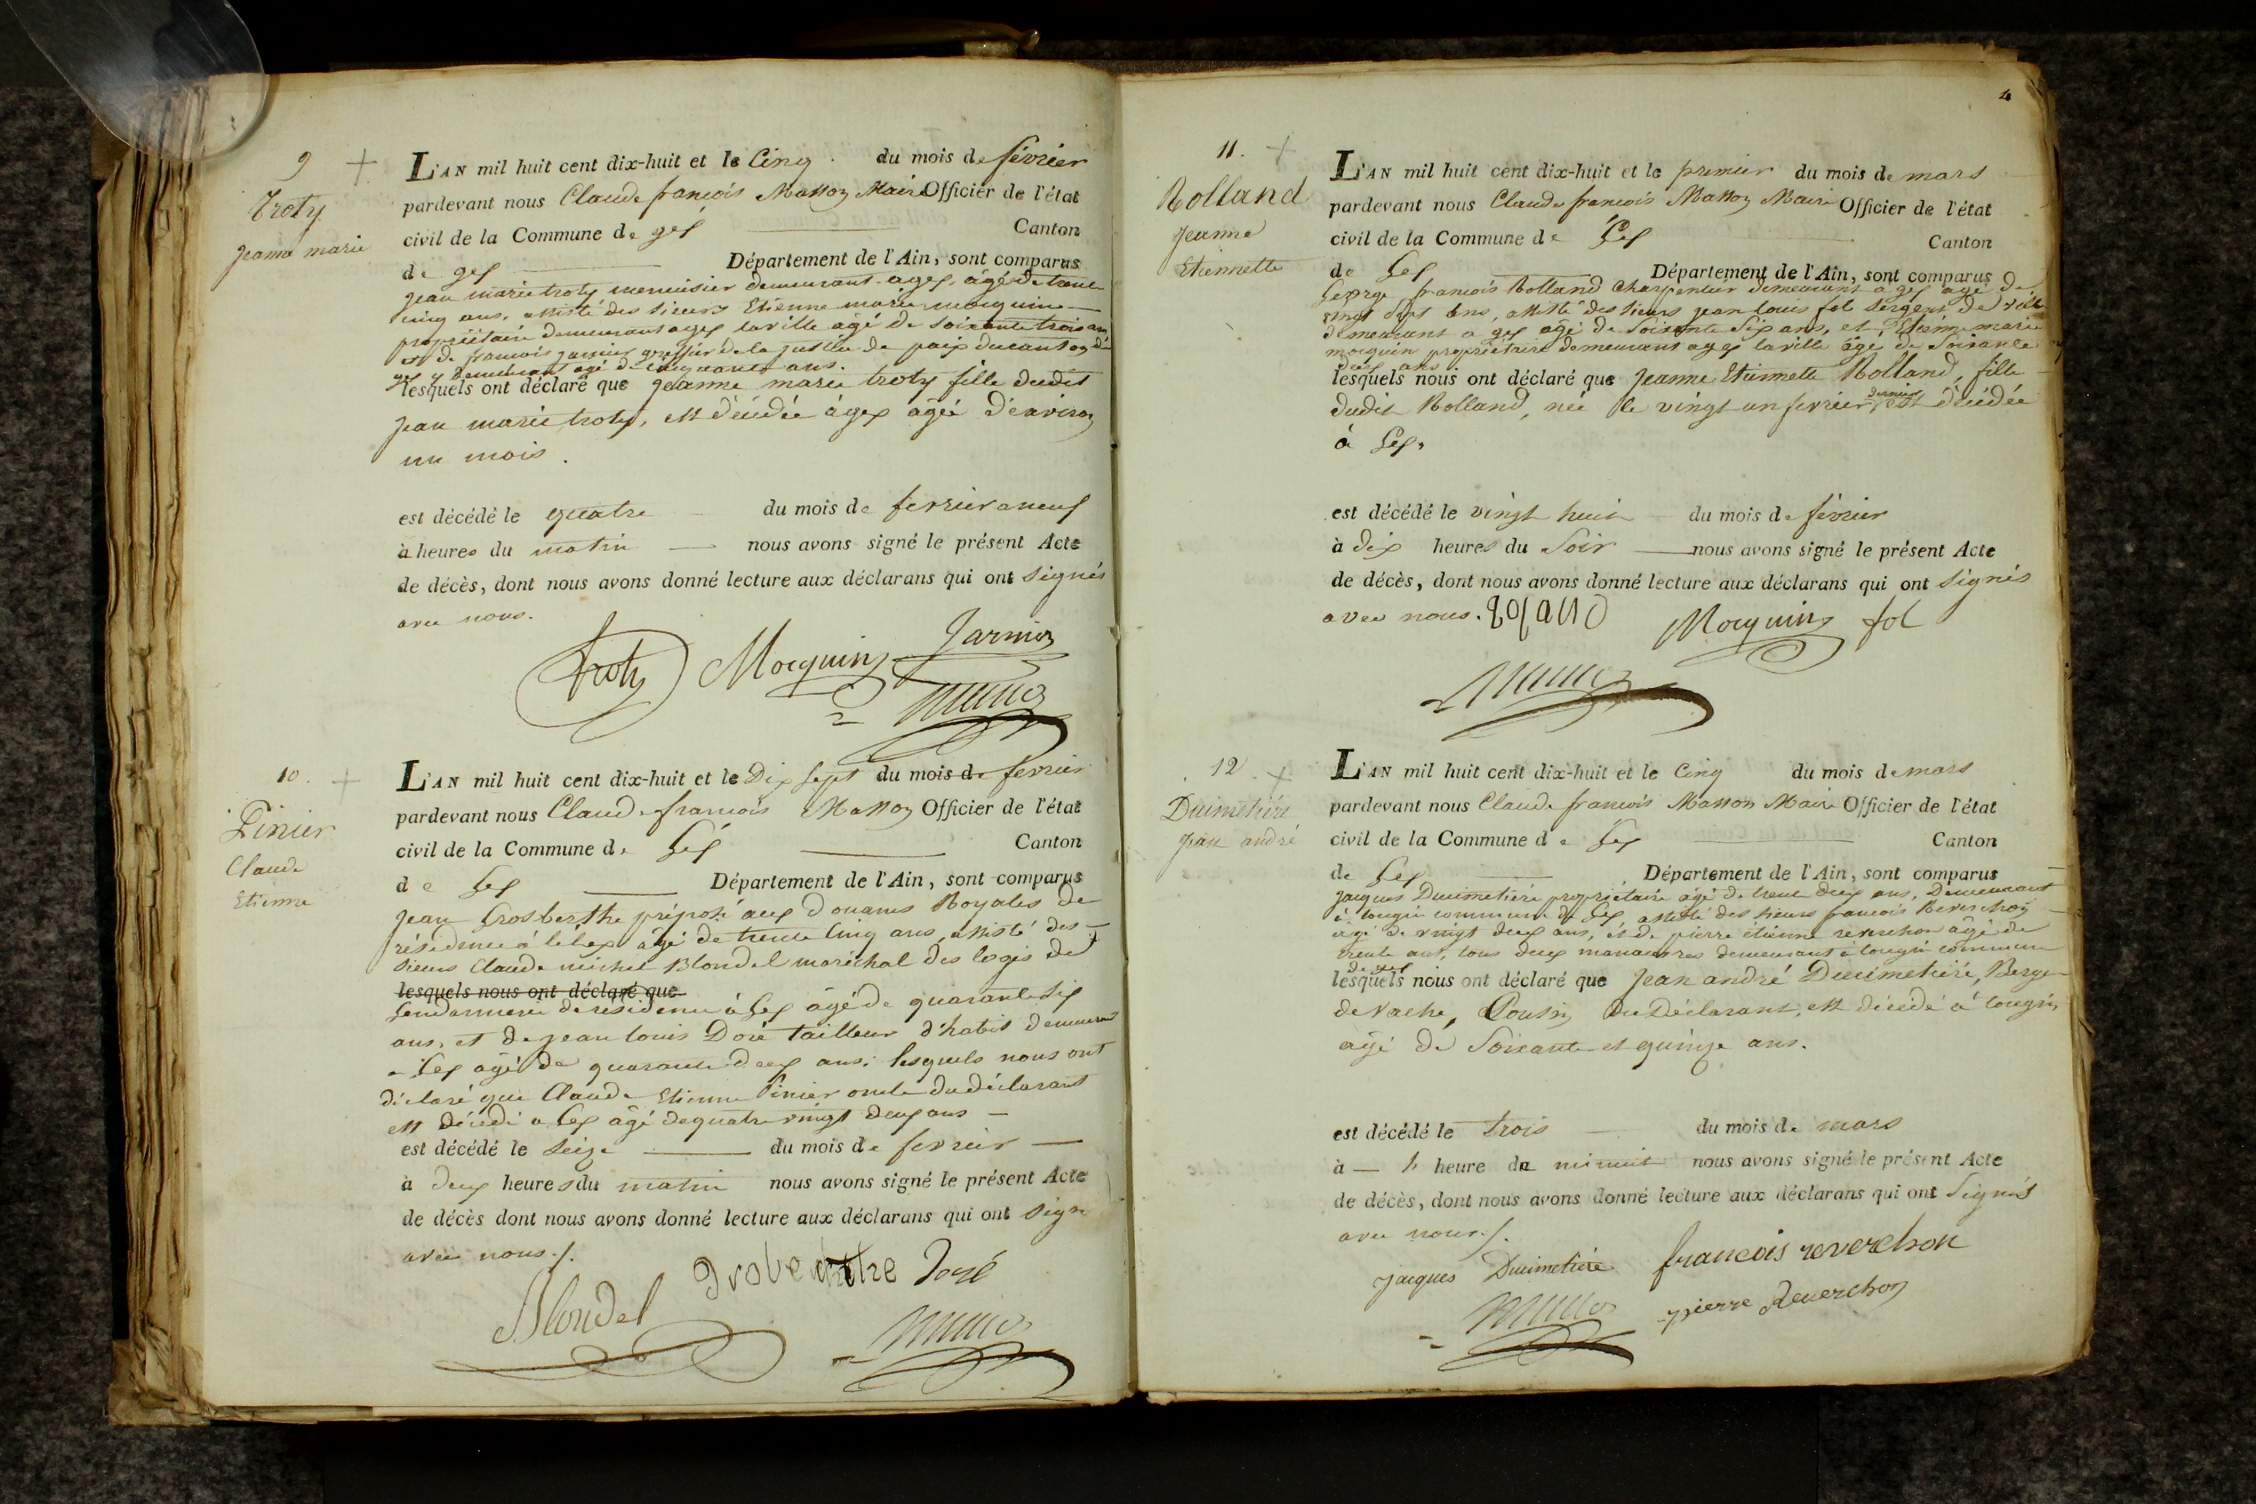 9
Troty
Jeanne marie
L'AN mil huit cent dix-huit et le Cinq du mois de février
pardevant nous Claude francois Masson Maire Officier de l'état
civil de la Commune de gex Canton
de gex Département de l'Ain, sont comparus
Jean marie troty menuisier demeurant a gex, âgé de trente
cinq ans, assisté des sieurs Etienne marie mocquin
propriétaire demeurant a gex la ville âgé de soixante trois ans
et de francois greffier de la justice de paix du canton de
gex y demeurant agé de cinquante ans.
lesquels ont déclaré que jeanne marie troty fille dudit
jean marie troty, est décédée à gex âgée d'environ
un mois.
est décédé le quatre du mois de fevrier a neuf
à heures du matin nous avons signé le présent Acte
de décès, dont nous avons donné lecture aux déclarans qui ont signés
avec nous.
troty Mocquin
10.
Pinier
Claude
Etienne
L'AN mil huit cent dix-huit et le Dix sept du mois de fevrier
pardevant nous Claude francois Masson Officier de l'état
civil de la Commune de Gex Canton
de Gex Département de l'Ain, sont comparus
Jean Grosberthe préposé aux Douanes Royales de
résidence à lelex âgé de trente cinq ans, assisté des
sieurs Claude michel Blondel maréchal des logis de
lesquels nous ont déclaré que
Gendarmerie de résidence à Gex âgé de quarante six
ans, et de jean louis Doré tailleur d'habit demeurant
a Gex âgé de quarante deux ans; lesquels nous ont
déclaré que Claude Etienne Pinier oncle du déclarant
est décédé a Gex âgé de quatre vingt deux ans
est décédé le seize du mois de fevrier
à deux heures du matin nous avons signé le présent Acte
de décès dont nous avons donné lecture aux déclarans qui ont signé
avec nous./.
Blondel Doré
4
11.
Rolland
Jeanne
Etiennette
L'AN mil huit cent dix-huit et le premier du mois de mars
pardevant nous Claude francois Masson Maire Officier de l'état
civil de la Commune de Gex Canton
de Gex Département de l'Ain, sont comparus
George francois Rolland Charpentier demeurant a gex agé de
vingt sept ans, assisté des sieurs jean louis fol sergent de ville
demeurant a gex agé de soixante six ans, et Etienne marie
mocquin propriétaire demeurant a gex la ville âgé de soixante
ans
lesquels nous ont déclaré que Jeanne Etiennette Rolland, fille
dudit Rolland, née le vingt un fevrier dernier, est décédée
à Gex,
est décédé le vingt huit du mois de février
à dix heures du soir nous avons signé le présent Acte
de décès, dont nous avons donné lecture aux déclarans qui ont signés
avec nous. Mocquin fol
12
Ducimetière
Jean andré
L'AN mil huit cent dix-huit et le Cinq du mois de mars
pardevant nous Claude francois Masson Maire Officier de l'état
civil de la Commune de Gex Canton
de Gex Département de l'Ain, sont comparus
jacques Ducimetière propriétaire âgé de trente deux ans, demeurant
à tougin commune de Gex, assisté des sieurs francois Reverchon
agé de vingt deux ans, et de pierre etienne reverchon âgé de
trente ans, tous deux manœuvres demeurant à tougin commune
de gex
lesquels nous ont déclaré que jean andré Ducimetière, Berger
de vache, Cousin du Déclarant, est décédé à tougin,
âgé de soixante et quinze ans.
est décédé le trois du mois de mars
à heure de minuit nous avons signé le présent Acte
de décès, dont nous avons donné lecture aux déclarans qui ont signés
avec nous./.
jacques Ducimetière francois reverchon
pierre Reverchon